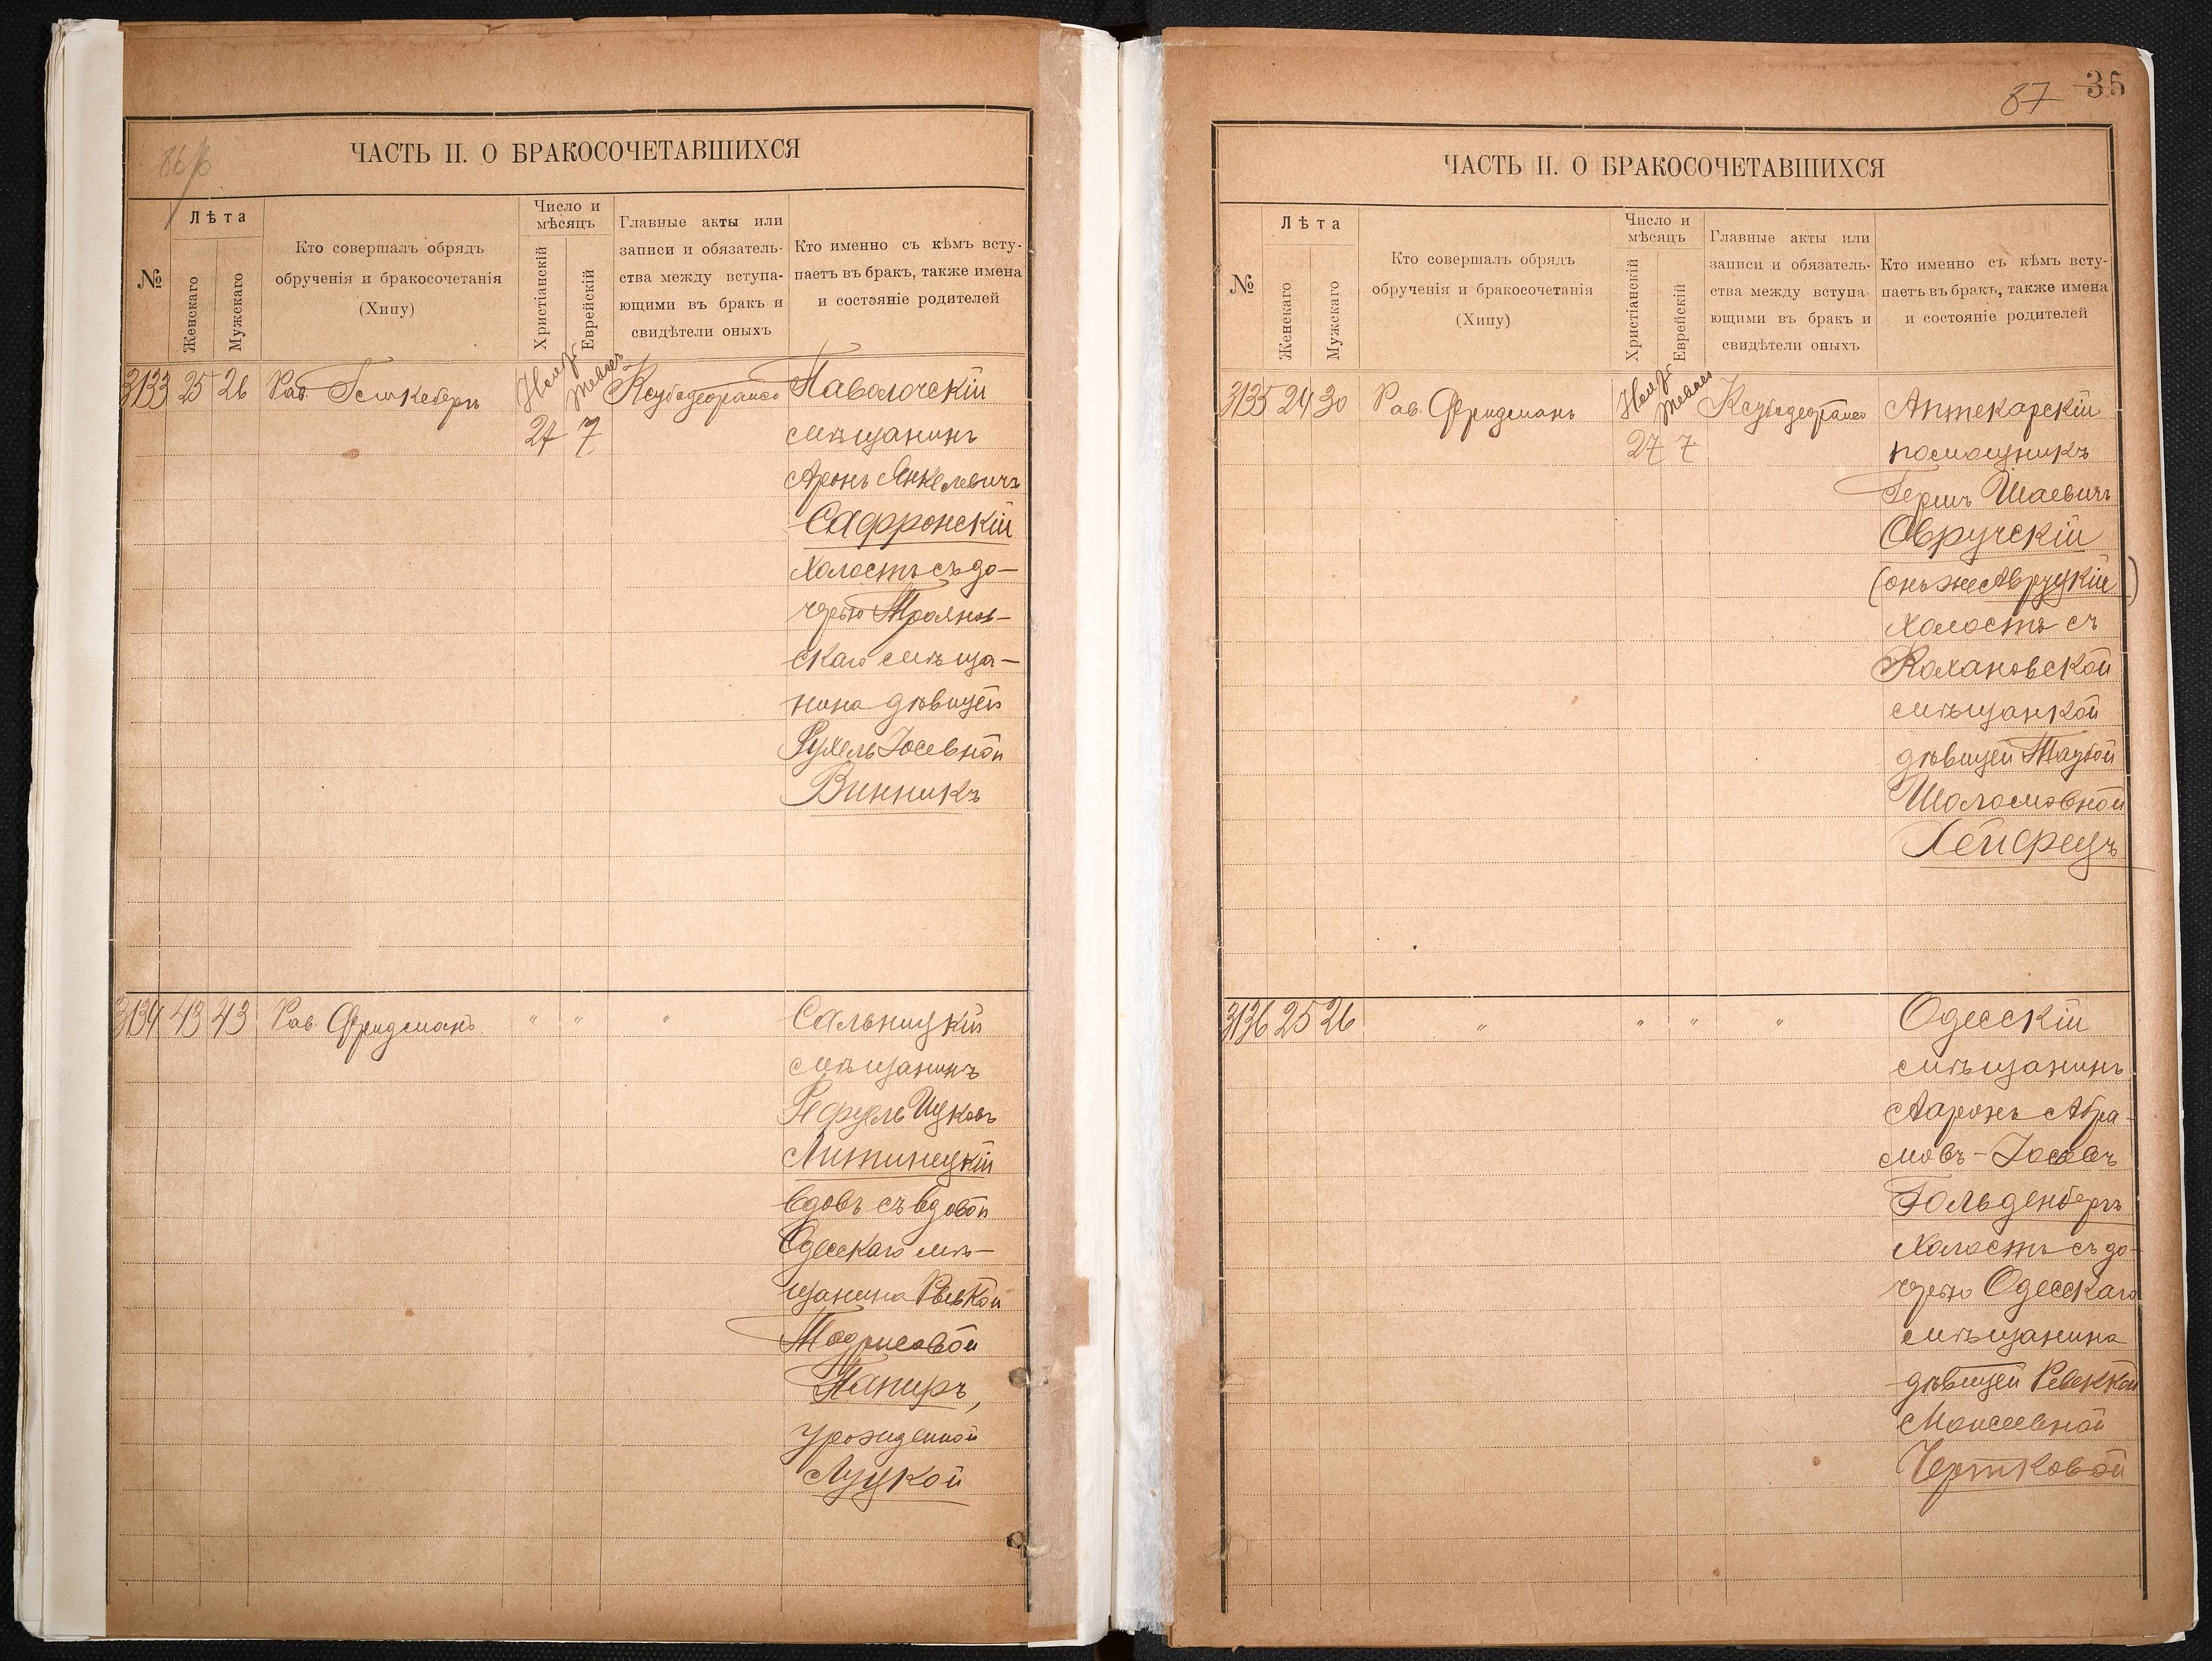 86/б
ЧАСТЬ II. О БРАКОСОЧЕТАВШИХСЯ
№
Лѣта
Женскаго
Мужскаго
Кто совершалъ обрядъ
обрученія и бракосочетанія
(Хипу)
Число и
мѣсяцъ
Христіанскій
Еврейскій
Главные акты или
записи и обязатель-
ства между вступа-
ющими въ бракъ и
свидѣтели оныхъ
Кто именно съ кѣмъ всту-
паетъ въ бракъ, также имена
и состояніе родителей
3133 25 26 Рав. Паволочскій
27 7 мѣщанинъ
Аронъ Янкелевичъ
Сафронскій
холостъ съ до-
черью Троянов-
скаго мѣща-
нина дѣвицей
Рухель Іосевной
Винникъ
3134 43 43 Рав. Фридманъ " " " Сальницкій
мѣщанинъ
Рефуель Ицковъ
Литинецкій
вдовъ съ вдовой
Одесскаго мѣ-
щанина Рывкой
Тодрисовой
Папиръ,
урожденной
Луцкой
87 36
ЧАСТЬ II. О БРАКОСОЧЕТАВШИХСЯ
№
Лѣта
Женскаго
Мужскаго
Кто совершалъ обрядъ
обрученія и бракосочетанія
(Хипу)
Число и
мѣсяцъ
Христіанскій
Еврейскій
Главные акты или
записи и обязатель-
ства между вступа
ющими въ бракъ и
свидѣтели оныхъ
Кто именно съ кѣмъ всту-
паетъ въ бракъ, также имена
и состояніе родителей
3135 24 30 Рав. Фридманъ Аптекарскій
27 7 помощникъ
Гершъ Шаевичъ
Овручскій
(онъ же Авруцкій)
холостъ съ
Кохановской
мѣщанкой
дѣвицей Таубой
Шоломовной
Хейфецъ
3136 25 26 " " " " Одесскій
мѣщанинъ
Ааронъ Абра-
мовъ-Іосевъ
Гольденбергъ
холостъ съ до-
черью Одесскаго
мѣщанина
дѣвицей Ревеккой
Моисеевной
Чертковой